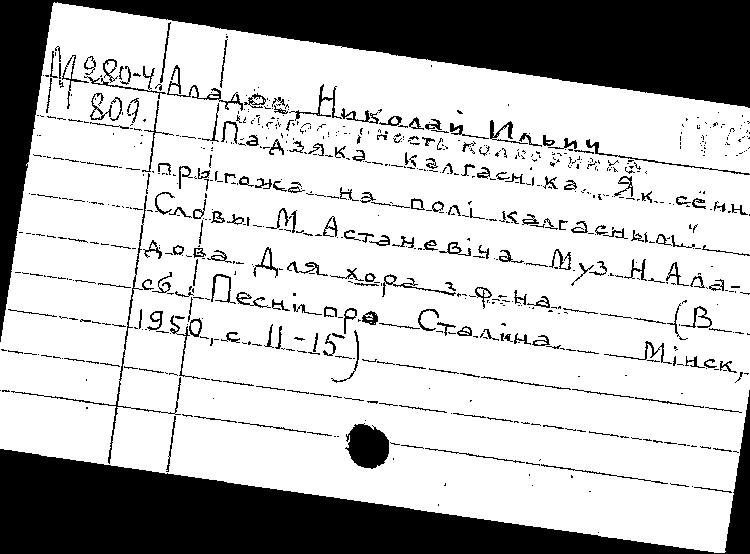 М 280-4
809.
Аладов, Николай Ильич
благодарность колхозника.
Падзяка калгасніка. „Як сённ
прыгожа на полі калгасным“.
Словы М. Астаневіча. Муз. Н. Ала-
дова. Для хора з ф-на. (В
сб.: Песні пра Сталіна. Мінск,
1950, с. 11-15)